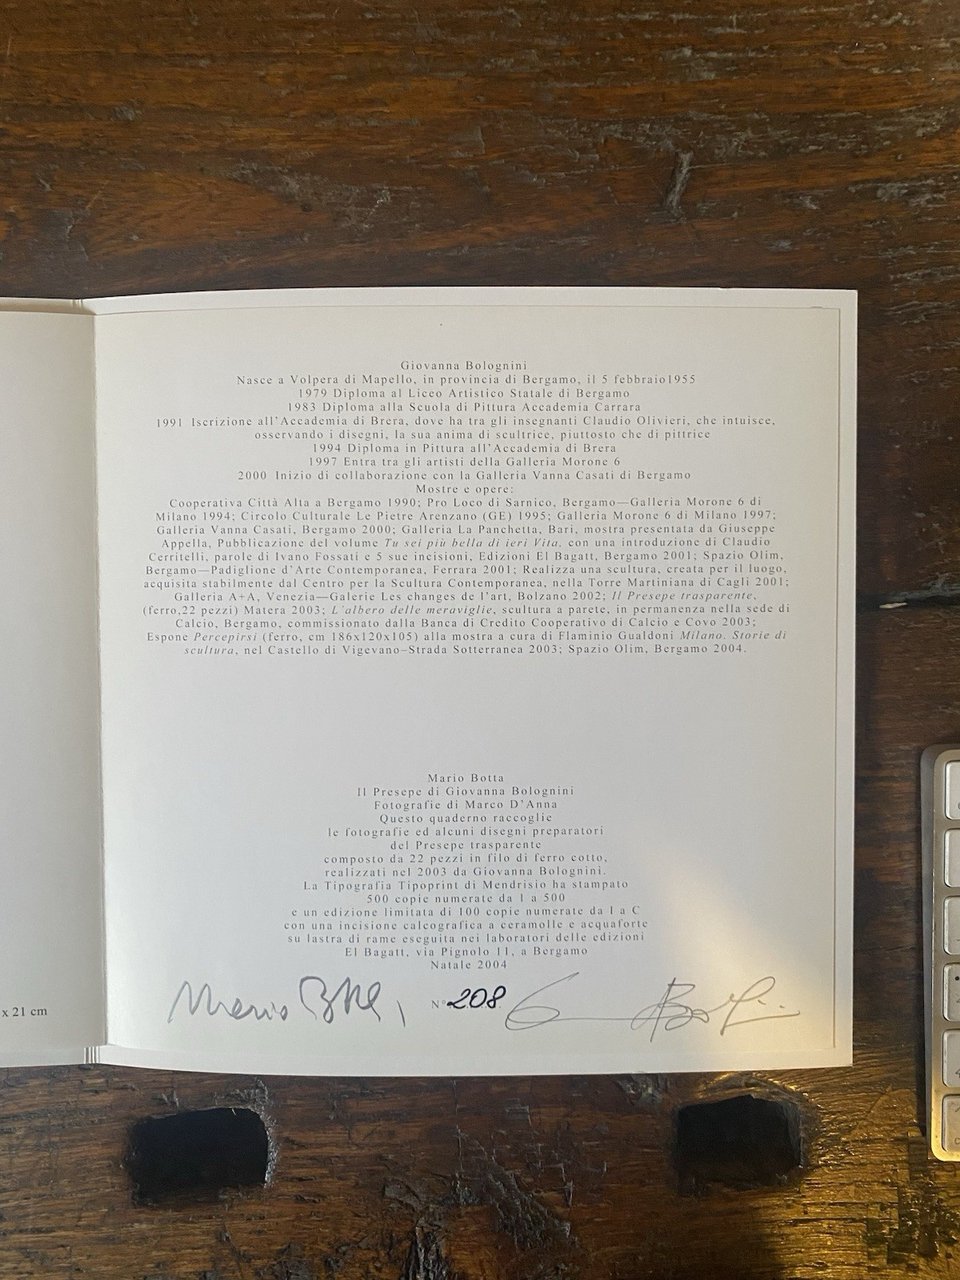 Giovanna Bolognini
Nasce a Volpera di Mapello, in provincia di Bergamo, il 5 febbraio1955
1979 Diploma al Liceo Artistico Statale di Bergamo
1983 Diploma alla Scuola di Pittura Accademia Carrara
1991 Iscrizione all'Accademia di Brera, dove ha tra gli insegnanti Claudio Olivieri, che intuisce,
osservando i disegni, la sua anima di scultrice, piuttosto che di pittrice
1994 Diploma in Pittura all'Accademia di Brera
1997 Entra tra gli artisti della Galleria Morone 6
2000 Inizio di collaborazione con la Galleria Vanna Casati di Bergamo
Mostre e opere:
Cooperativa Città Alta a Bergamo 1990; Pro Loco di Sarnico, Bergamo—Galleria Morone 6 di
Milano 1994; Circolo Culturale Le Pietre Arenzano (GE) 1995; Galleria Morone 6 di Milano 1997;
Galleria Vanna Casati, Bergamo 2000; Galleria La Panchetta, Bari, mostra presentata da Giuseppe
Appella, Pubblicazione del volume Tu sei più bella di ieri Vita, con una introduzione di Claudio
Cerritelli, parole di Ivano Fossati e 5 sue incisioni, Edizioni El Bagatt, Bergamo 2001; Spazio Olim,
Bergamo—Padiglione d'Arte Contemporanea, Ferrara 2001; Realizza una scultura, creata per il luogo,
acquisita stabilmente dal Centro per la Scultura Contemporanea, nella Torre Martiniana di Cagli 2001;
Galleria A+A, Venezia—Galerie Les changes de l'art, Bolzano 2002; Il Presepe trasparente,
(ferro,22 pezzi) Matera 2003; L'albero delle meraviglie, scultura a parete, in permanenza nella sede di
Calcio, Bergamo, commissionato dalla Banca di Credito Cooperativo di Calcio e Covo 2003;
Espone Percepirsi (ferro, cm 186x120x105) alla mostra a cura di Flaminio Gualdoni Milano. Storie di
scultura, nel Castello di Vigevano–Strada Sotterranea 2003; Spazio Olim, Bergamo 2004.
Mario Botta
Il Presepe di Giovanna Bolognini
Fotografie di Marco D'Anna
Questo quaderno raccoglie
le fotografie ed alcuni disegni preparatori
del Presepe trasparente
composto da 22 pezzi in filo di ferro cotto,
realizzati nel 2003 da Giovanna Bolognini.
La Tipografia Tipoprint di Mendrisio ha stampato
500 copie numerate da 1 a 500
e un edizione limitata di 100 copie numerate da I a C
con una incisione calcografica a ceramolle e acquaforte
su lastra di rame eseguita nei laboratori delle edizioni
El Bagatt, via Pignolo 11, a Bergamo
Natale 2004
Mario Botta N° 208
x 21 cm